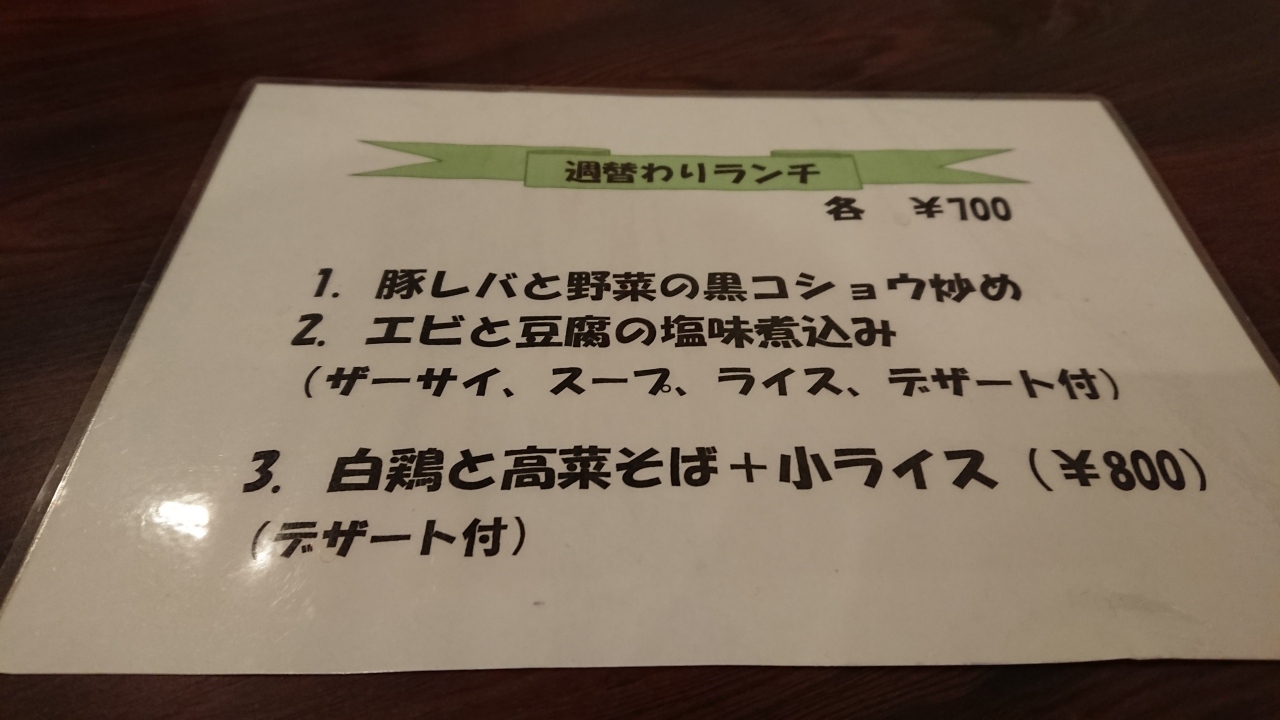 週替わりランチ
各　¥700
1. 豚レバと野菜の黒コショウ炒め
2. エビと豆腐の塩味煮込み
(ザーサイ、スープ、ライス、デザート付)
3. 白鶏と高菜そば＋小ライス(¥800)
(デザート付)